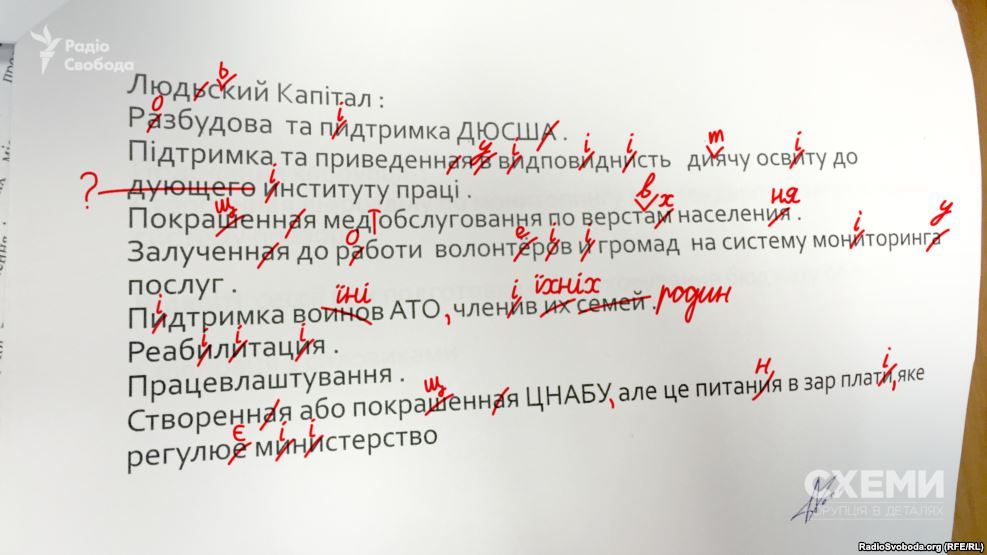 Радіо
Свобода
Людьский Капітал :
ь
Разбудова та пидтримка ДЮСША .
о і
Підтримка та приведенная в видповиднисть диячу освиту до
у і і і т і
? дующего институту праці .
і
Покрашенная мед обслуговання по верстам населении .
щ в х ня
Залученная до работи волонтёров и громад на систему мониторинга
о е і і і у
послуг .
Пидтримка воинов АТО, членив их семей .
і їні і їхніх родин
Реабилитация .
і і і
Працевлаштування .
Створенная або покрашенная ЦНАБУ, але це питания в зар плати, яке
щ н і
регулюе министерство
є і і
СХЕМИ
КОРУПЦІЯ В ДЕТАЛЯХ
RadioSvoboda.org (RFE/RL)